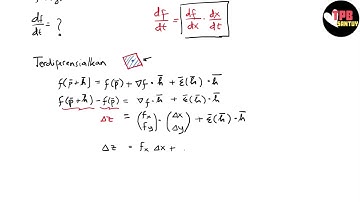 df/dt = ?
df/dt = df/dx · dx/dt
IPB SANTUY
Terdiferensialkan
f(p̄+h̄) = f(p̄) + ∇f · h̄ + ε̄(h̄) · h̄
f(p̄+h̄) - f(p̄) = ∇f · h̄ + ε̄(h̄) · h̄
Δz = (fx fy) · (Δx Δy) + ε̄(h̄) · h̄
Δz = fx Δx +